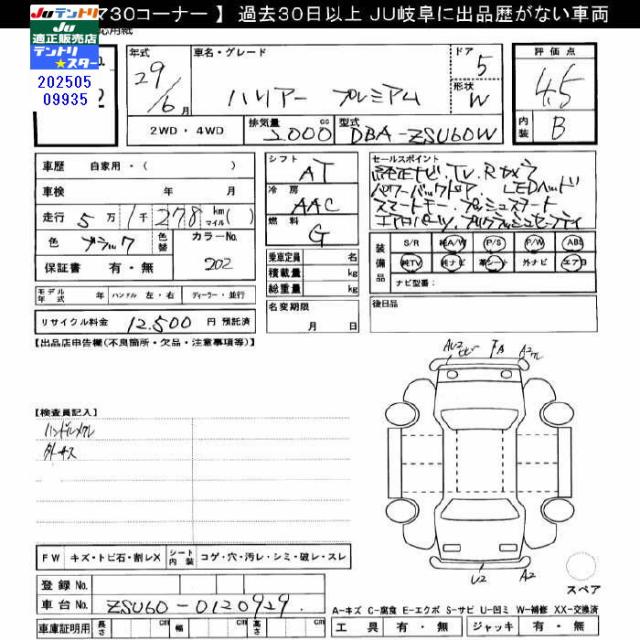 マ30コーナー 】 過去30日以上 JU岐阜に出品歴がない車両
JUテントリ
JU
適正販売店
テントリ
★スター
202505
09935
年式 29/6月
車名・グレード ハリアー プレミアム
ドア 5
形状 W
2WD・4WD
排気量 2000 cc
型式 DBA-ZSU60W
評価点 4.5
内装 B
車歴 自家用・( )
車検 年 月
走行 5万1千278 km マイル( )
色 ブラック 色替
カラーNo. 202
保証書 有・無
モデル年式 年 ハンドル 左・右 ディーラー・並行
リサイクル料金 12,500 円 預託済
シフト AT
冷房 AAC
燃料 G
乗車定員 名
積載量 kg
総重量 kg
名変期限
月 日
セールスポイント
純正ナビ、TV、Rカメラ
パワーバックドア、LEDヘッド
スマートキー、プッシュスタート
エアロパーツ、プリクラッシュセーフティ
装備品
S/R 純A/W P/S P/W ABS
純TV 純ナビ 革シート 外ナビ エアB
ナビ型番:
後日品
【出品店申告欄(不良箇所・欠品・注意事項等)】
【検査員記入】
ハンドルスレ
外キズ
A2
FA
U2
A2
FW キズ・トビ石・割レX シート内装 コゲ・穴・汚レ・シミ・破レ・スレ
登録No.
車台No. ZSU60-0120929
車庫証明用 長さ cm 幅 cm 高さ cm
スペア
A-キズ C-腐食 E-エクボ S-サビ U-凹ミ W-補修 XX-交換済
工具 有・無 ジャッキ 有・無